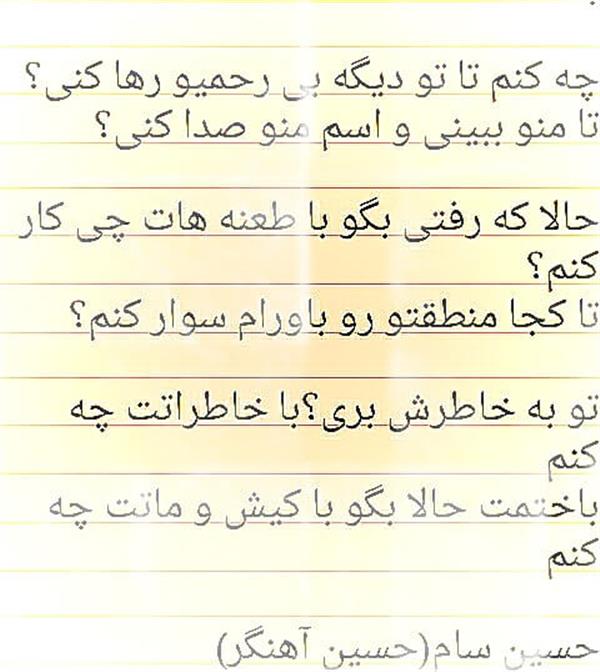 چه کنم تا تو دیگه بی رحمیو رها کنی؟
تا منو ببینی و اسم منو صدا کنی؟
حالا که رفتی بگو با طعنه هات چی کار
کنم؟
تا کجا منطقتو رو باورام سوار کنم؟
تو به خاطرش بری؟با خاطراتت چه
کنم
باختمت حالا بگو با کیش و ماتت چه
کنم
حسین سام(حسین آهنگر)